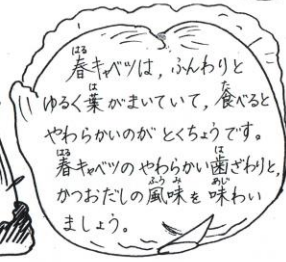 春キャベツは，ふんわりと
ゆるく葉がまいていて，食べると
やわらかいのがとくちょうです。
春キャベツのやわらかい歯ざわりと，
かつおだしの風味を味わい
ましょう。